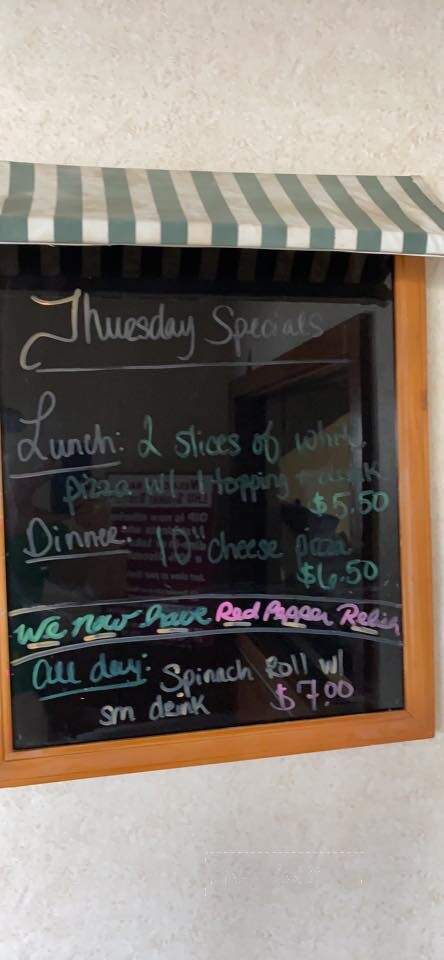 Thursday Specials
Lunch: 2 slices of White
pizza w/ 1 topping + drink
$5.50
Dinner: 10" cheese pizza
$6.50
We now have Red Pepper Relish
All day: Spinach Roll w/
sm drink $7.00